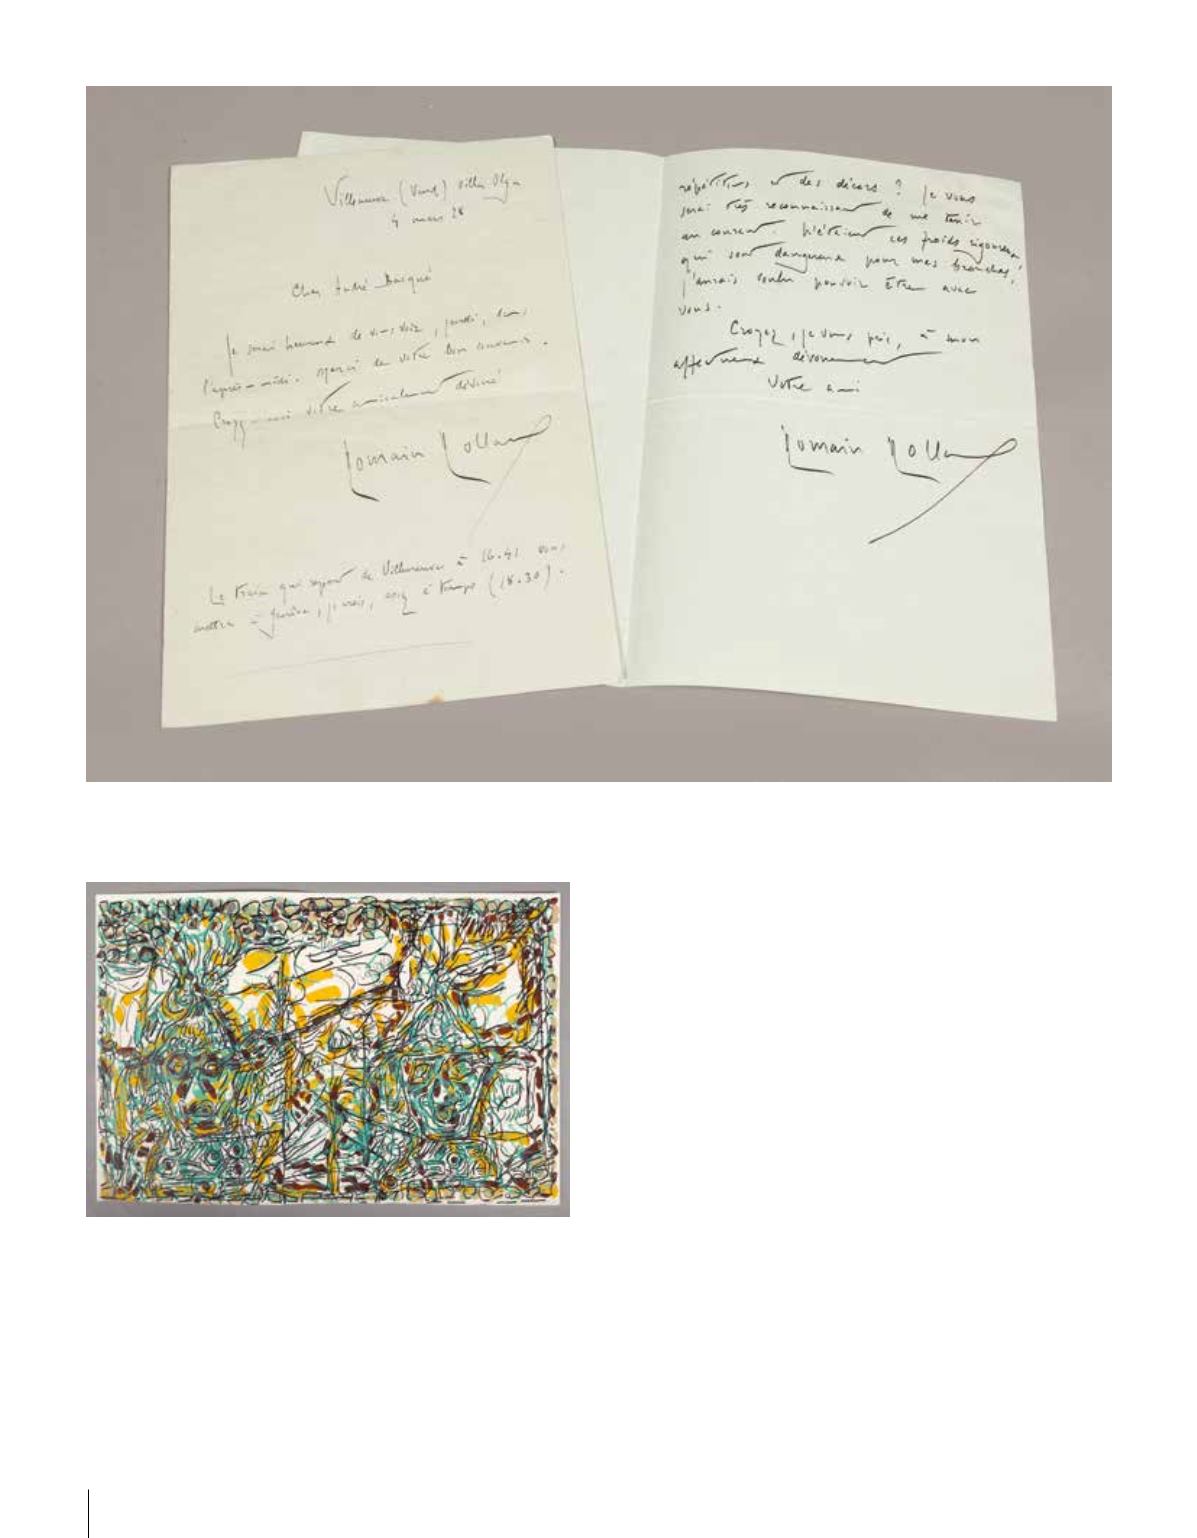 Villeneuve (Vaud) villa Olga
4 mars 28
Cher André Bacqué
Je serai heureux de vous voir, jeudi, dans
l'après-midi. Merci de votre bon souvenir.
Croyez-moi votre amicalement dévoué
Romain Rolland
Le train qui repart de Villeneuve à 16.41 vous
mettra à Genève, je crois, assez à temps (18.30).
répétitions et des décors ? Je vous
serai très reconnaissant de me tenir
au courant. N'étaient ces froids rigoureux,
qui sont dangereux pour mes bronches,
j'aurais voulu pouvoir être avec
vous.
Croyez, je vous prie, à mon
affectueux dévouement
Votre ami
Romain Rolland